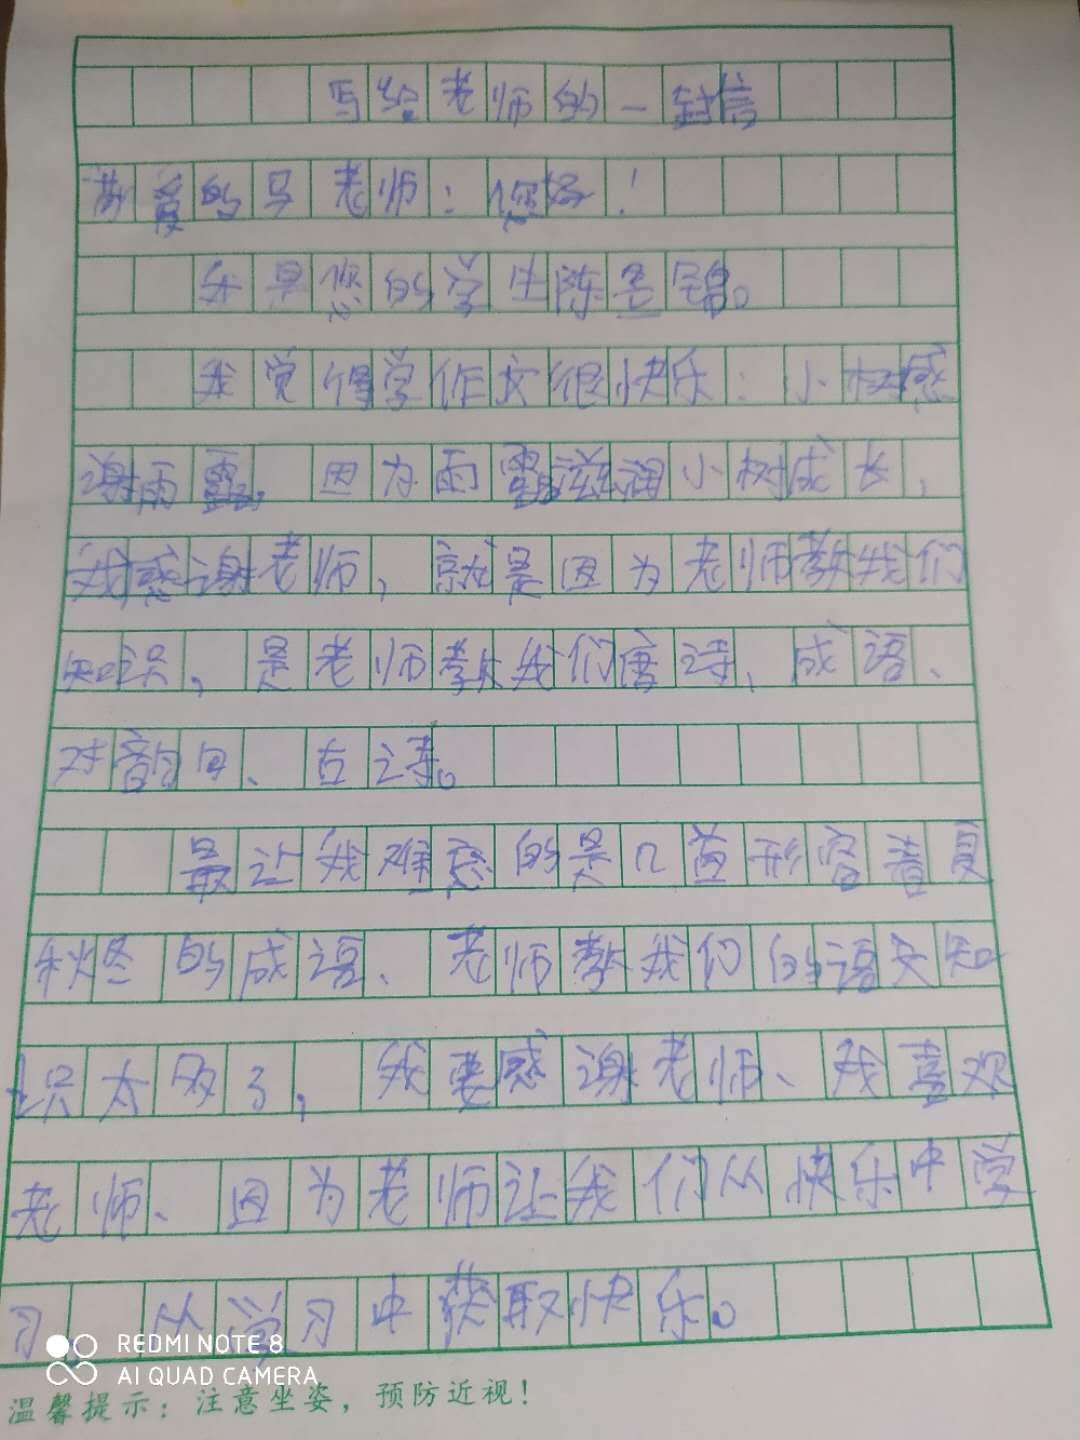 写给老师的一封信
亲爱的马老师：您好！
我是您的学生陈
我觉得学作文很快乐：小树感
谢雨露，因为雨露滋润小树成长，
我感谢老师，就是因为老师教我们
知识，是老师教我们唐诗、成语、
对韵间、古诗。
最让我难忘的是几首形容春夏
秋冬的成语、老师教我们的语文知
识太多了，我要感谢老师、我喜欢
老师、因为老师让我们从快乐中学
习，从学习中获取快乐。
REDMI NOTE 8
AI QUAD CAMERA
温馨提示：注意坐姿，预防近视！